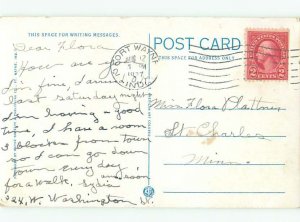 THIS SPACE FOR WRITING MESSAGES.
POST CARD
THIS SPACE FOR ADDRESS ONLY.
FORT WAYNE
AUG 12
5 PM
IND.
2 CENTS 2
Dear Flora
How are
I'm fine, I arrived
last saturday night
I am having a good
time, I have a room
3 blocks from town
so I can go down
town every day
for a walk, Lydia
924 W. Washington
Miss Flora Plattner
St Charles
Minn.